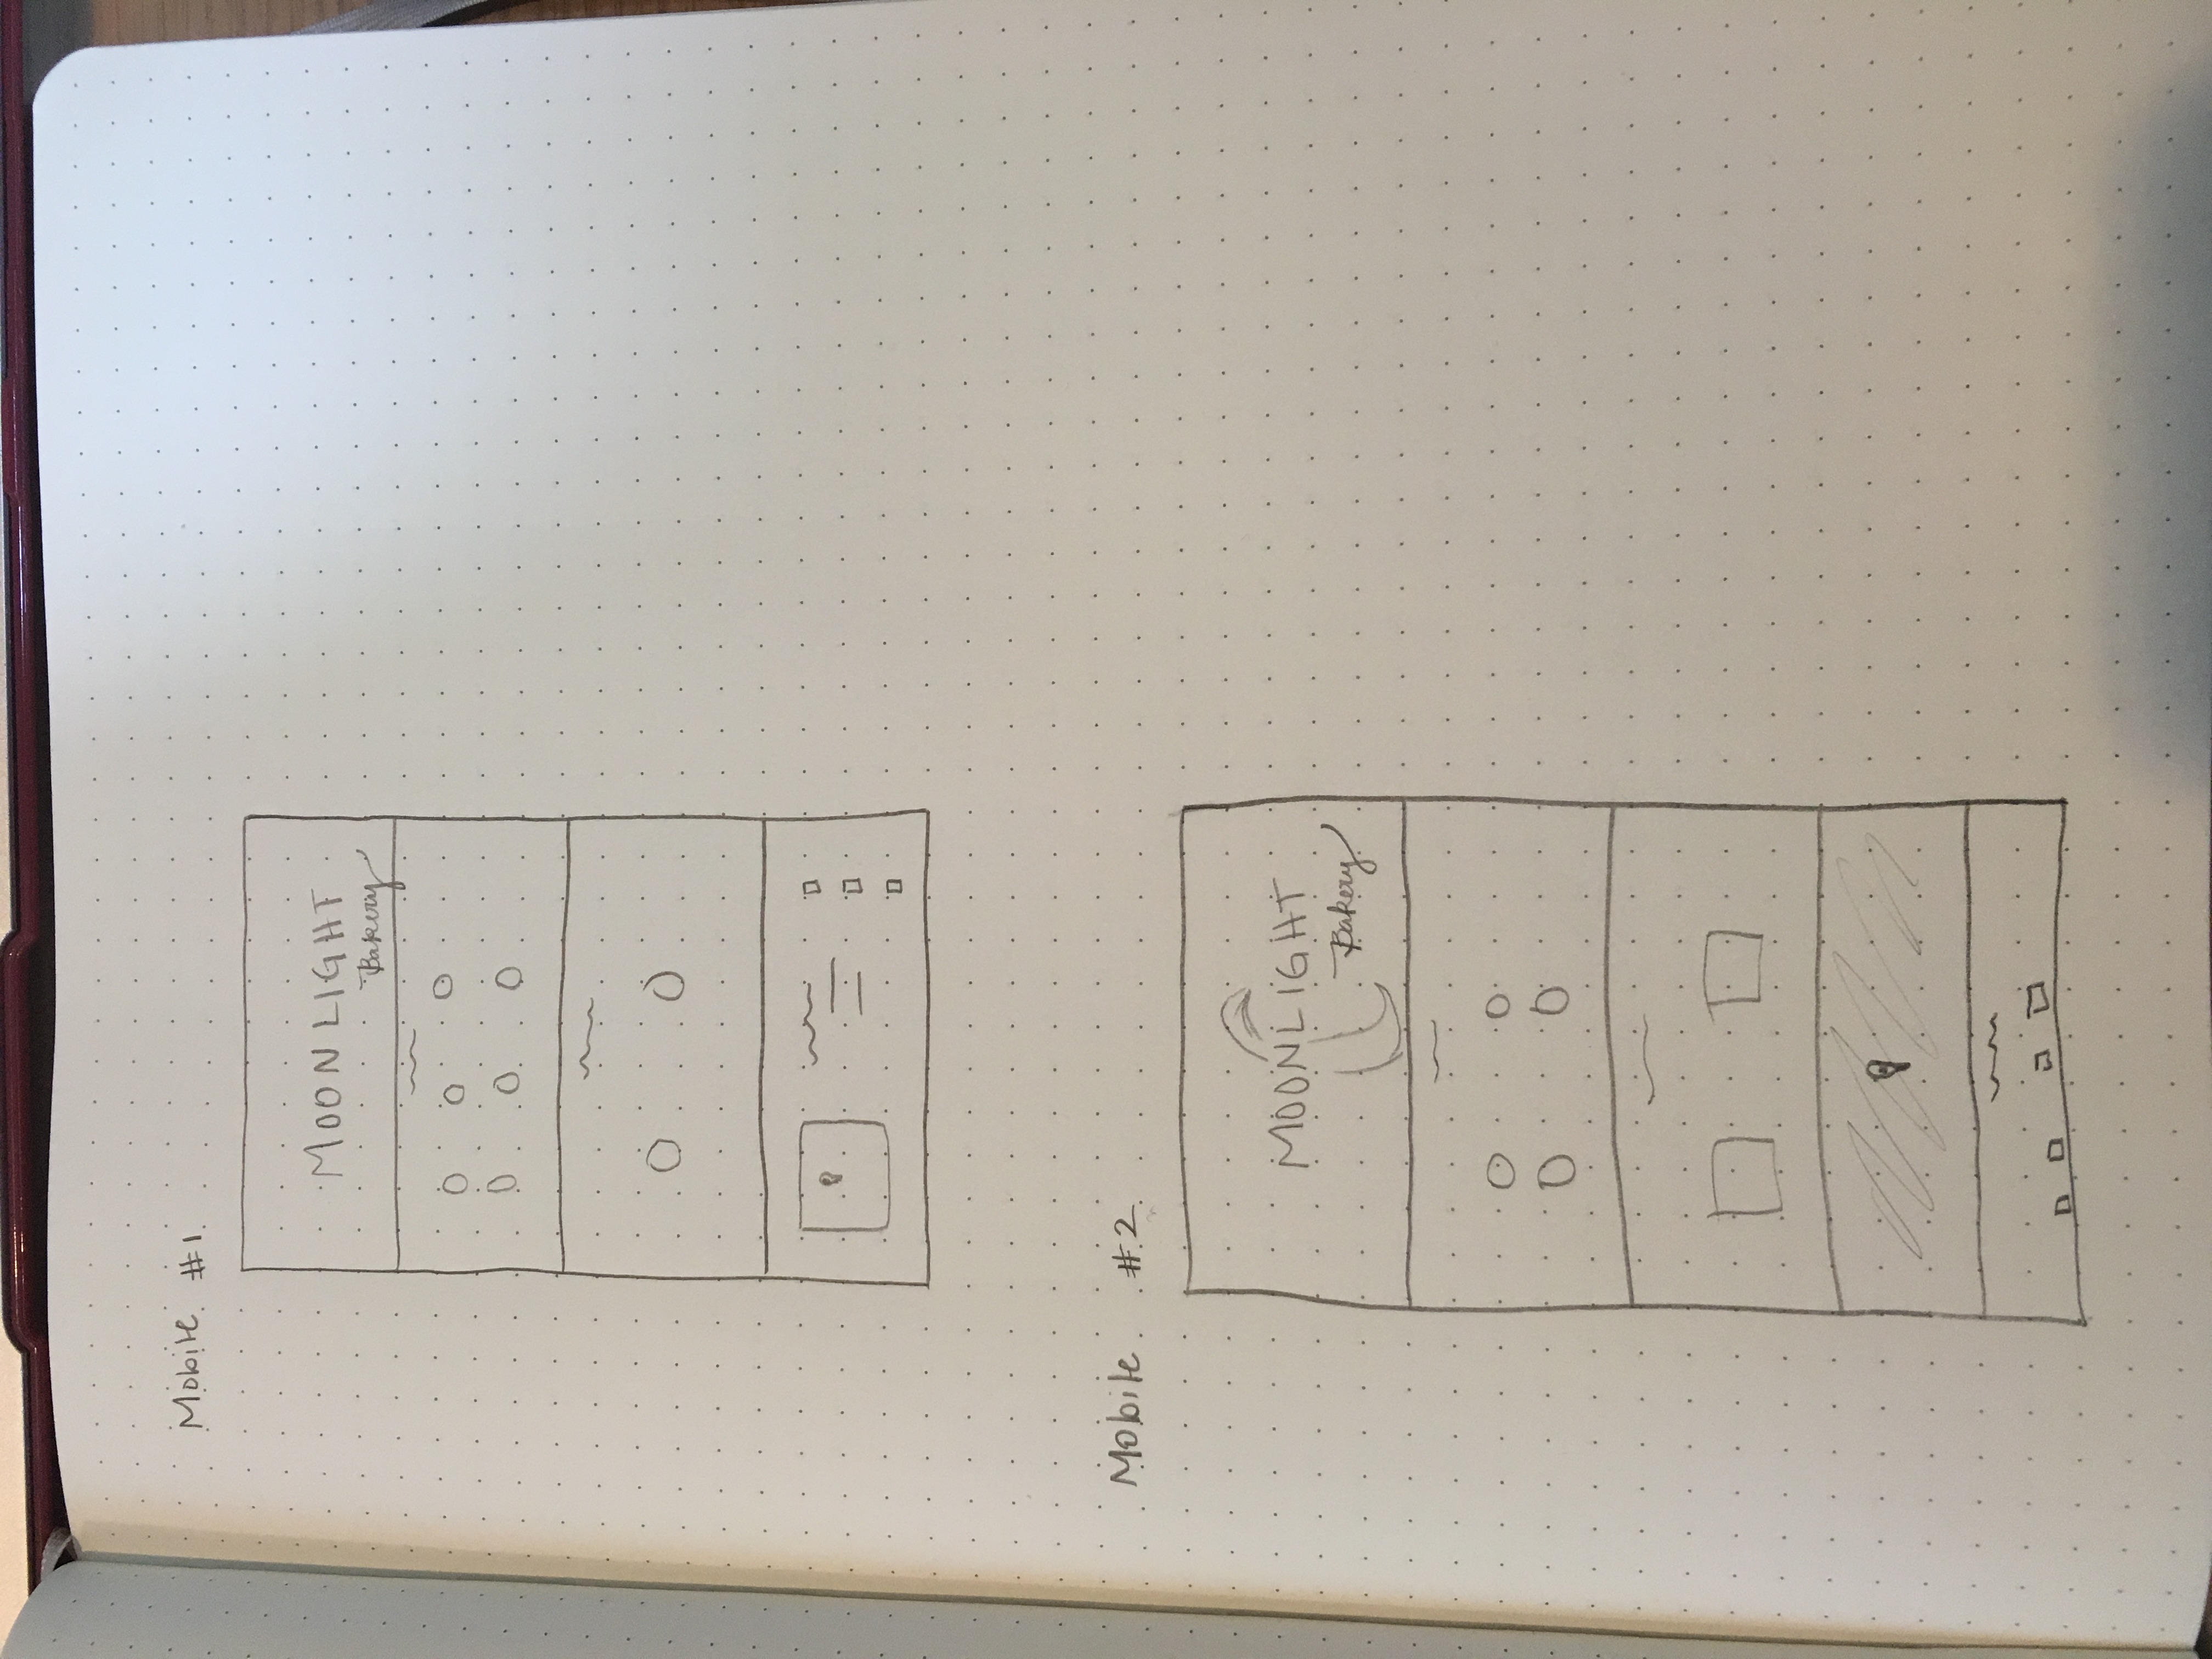 Mobile #1
MOONLIGHT
Bakery
Mobile #2
MOONLIGHT
Bakery